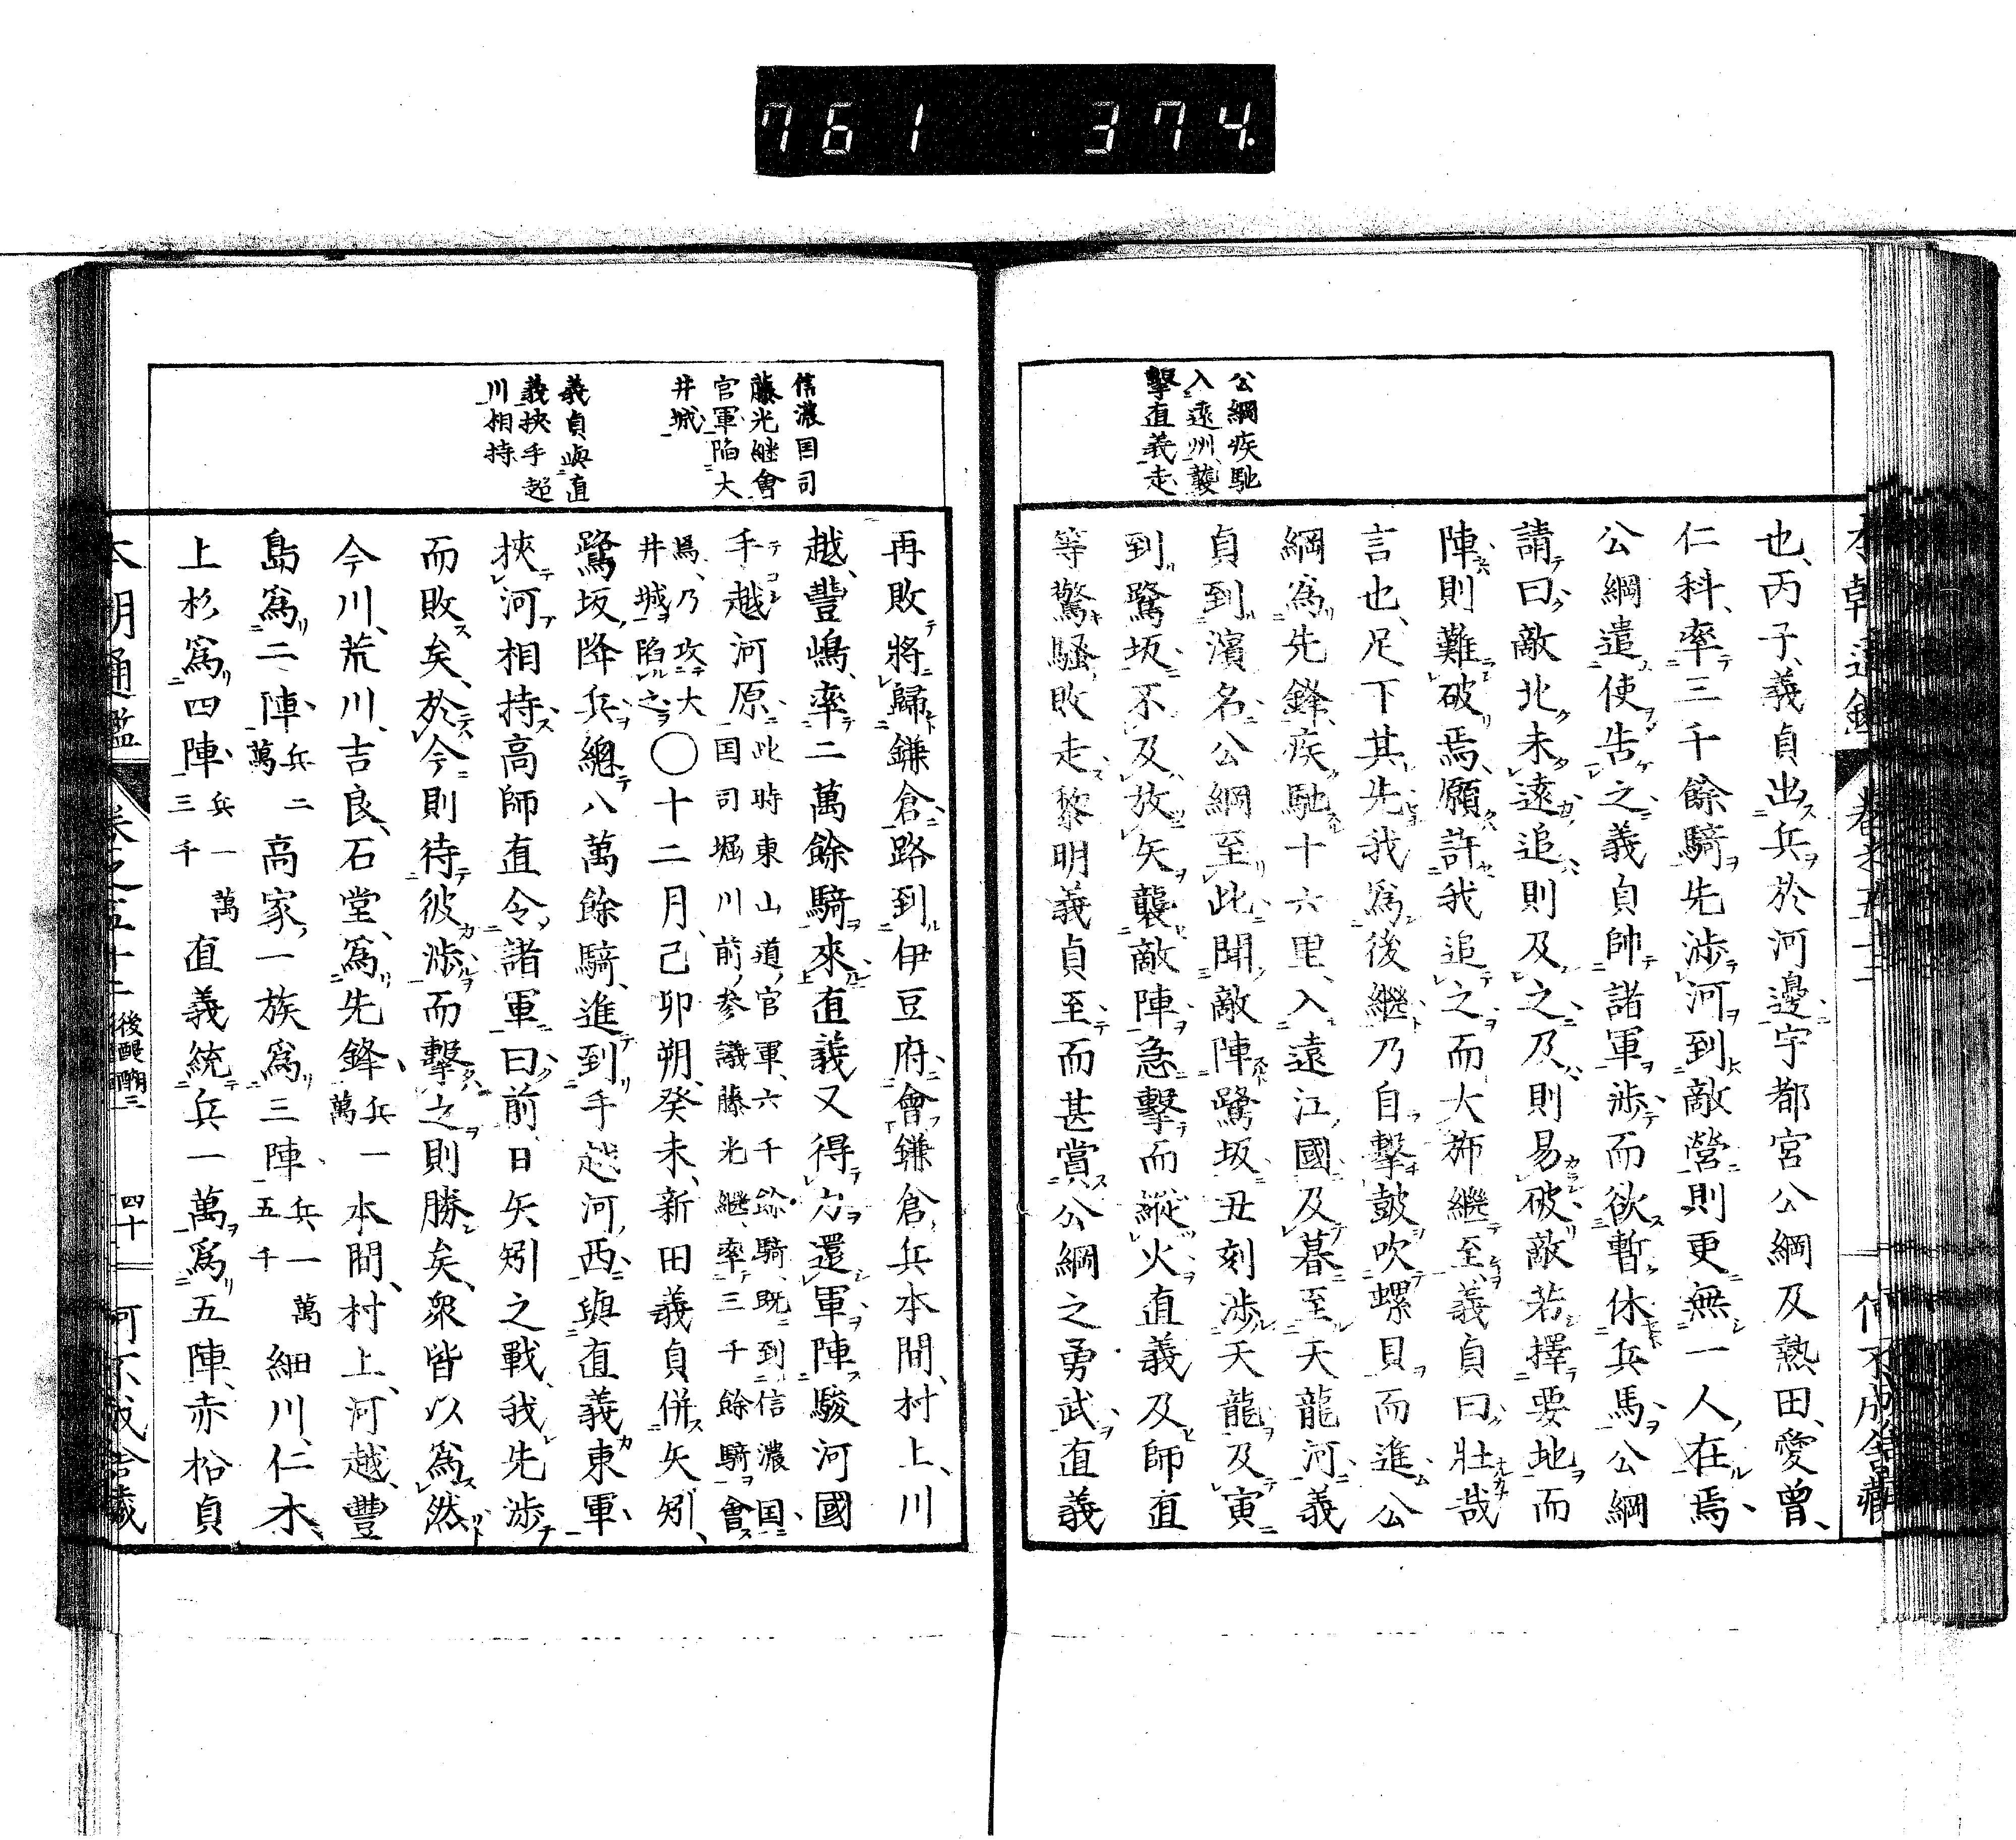 761 374.
公綱疾馳
入遠州襲
擊直義走
也、丙子、義貞出兵於河邊宇都宮公綱及熱田、愛曾、
仁科、率三千餘騎先渉河到敵營則更無一人在焉、
公綱遣使告之義貞帥諸軍渉而欲暫休兵馬公綱
請曰敵北未遠追則及之及則易破敵若擇要地而
陣則難破焉、願許我追之而大斾繼至義貞曰壯哉
言也、足下其先我爲後繼乃自擊鼓吹螺貝而進公
綱爲先鋒疾馳十六里、入遠江國及暮至天龍河義
貞到濱名公綱至此聞敵陣鷺坂丑刻渉天龍及寅
到鷺坂不及放矢襲敵陣急擊而縱火直義及師直
等驚騷敗走黎明義貞至而甚賞公綱之勇武直義
信濃国司
藤光継會
官軍陷大
井城
義貞與直
義挾手越
川相持
再敗將歸鎌倉路到伊豆府會鎌倉兵本間、村上、川
越、豐嶋、率二萬餘騎來直義又得力還軍陣駿河國
手越河原此時東山道官軍、六千餘騎、既到信濃国、
国司堀川前參議藤光繼、率三千餘騎會
焉、乃攻大
井城陷之〇十二月、己卯朔、癸未、新田義貞併矢矧、
鷺坂、降兵總八萬餘騎、進到手越河西與直義東軍
挾河相持高師直令諸軍曰前日矢矧之戰、我先渉
而敗矣、於今則待彼渉而擊之則勝矣、衆皆以爲然
今川、荒川、吉良、石堂、爲先鋒、兵一萬本間、村上、河越、豐
島爲二陣、兵二萬高家一族爲三陣、兵一萬五千細川、仁木、
上杉爲四陣、兵一萬三千直義統兵一萬爲五陣、赤松貞
本朝通鑑
後醍醐三
四十